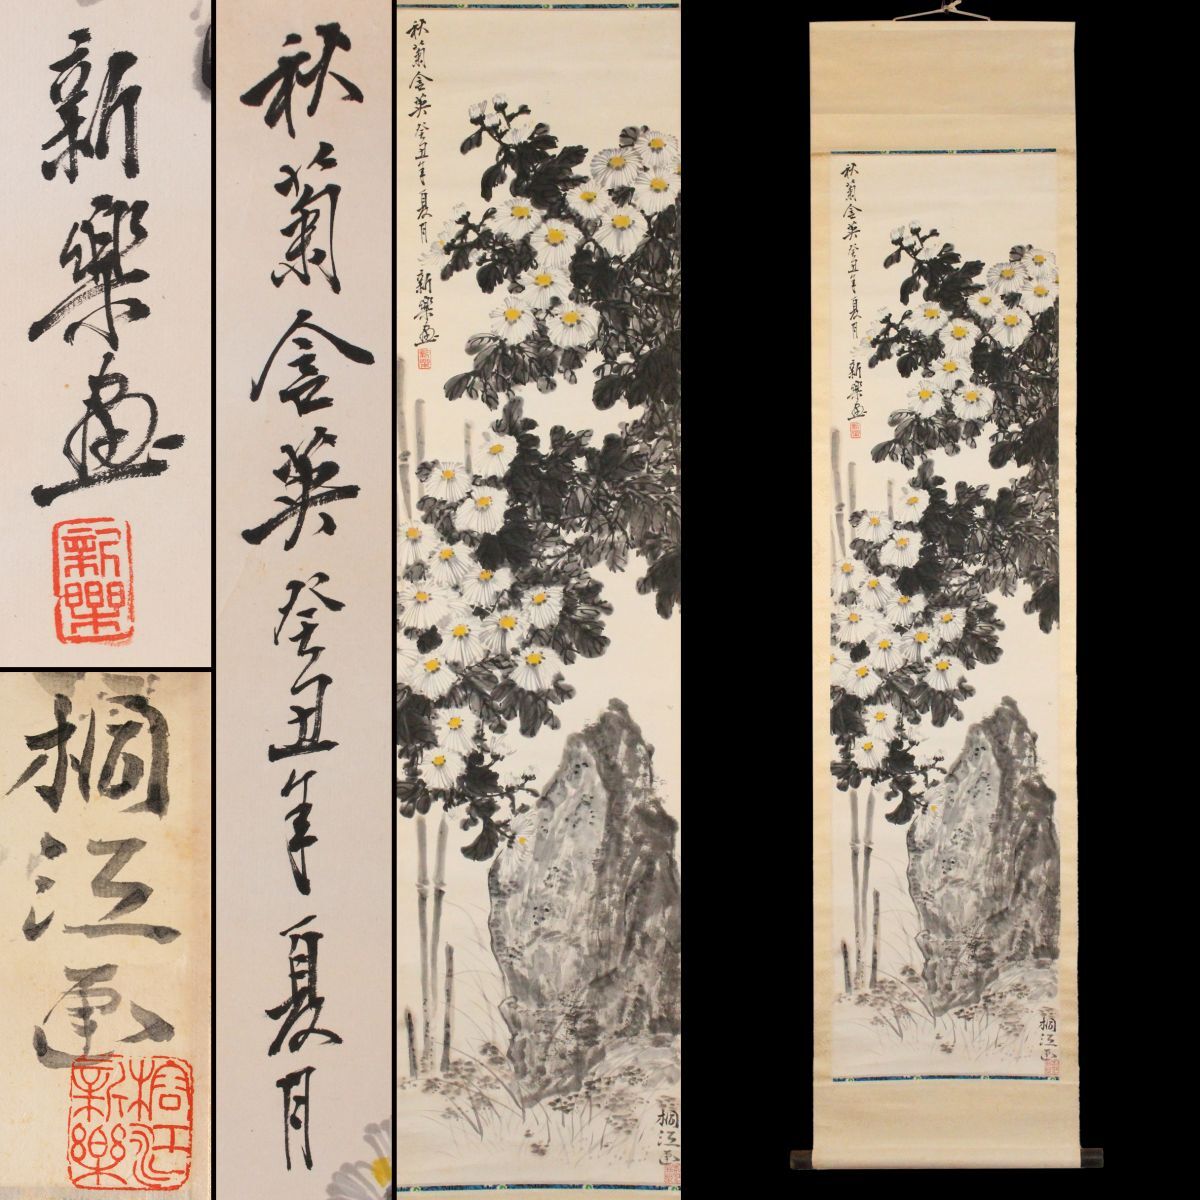 新樂画
新樂
桐江画
桐江
新樂
秋菊含英癸丑年夏月
秋菊含英癸丑年夏月
新樂画
新樂
桐江画
秋菊含英癸丑年夏月
新樂画
新樂
桐江画